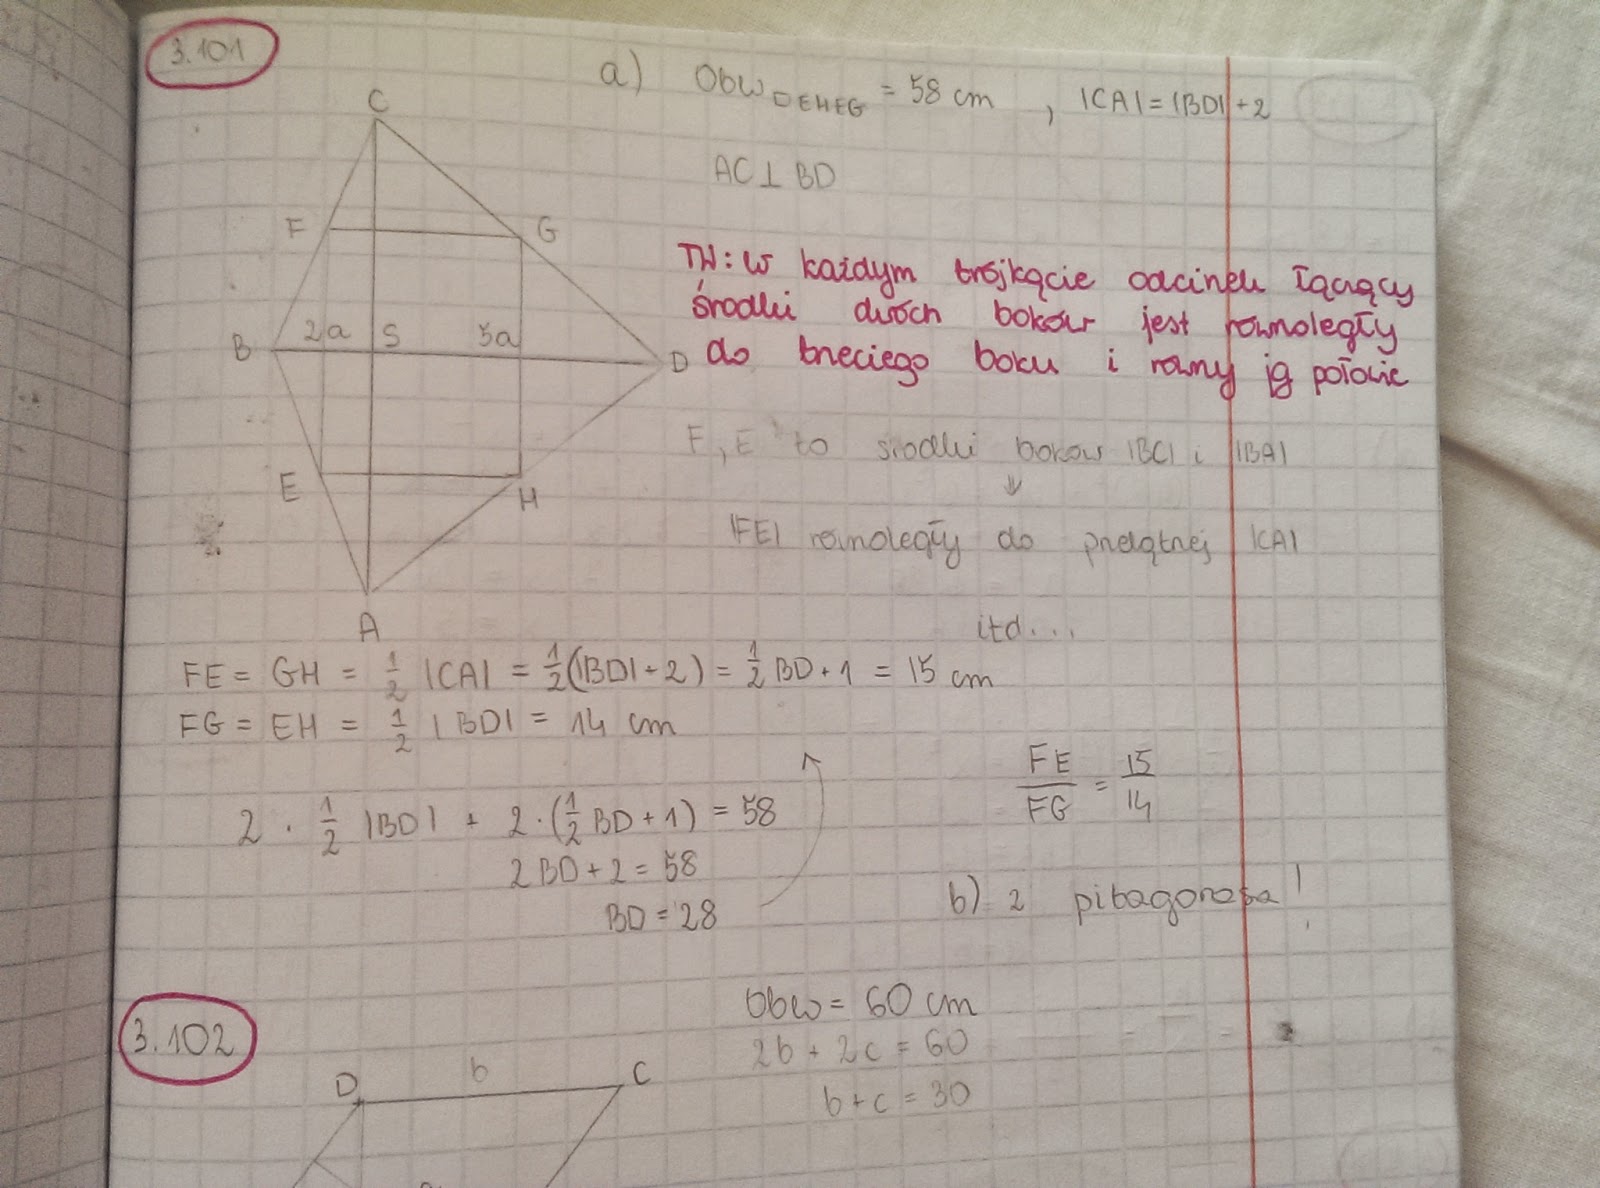 3.101
a) Obw▱EHEG = 58 cm , |CA| = |BD| + 2
C
AC ⊥ BD
F G
TW: W każdym trójkącie odcinek łączący
środki dwóch boków jest równoległy
do trzeciego boku i równy jej połowie
B 2a S 5a D
F, E to środki boków |BC| i |BA|
⇓
E H
|FE| równoległy do przekątnej |CA|
A
itd...
FE = GH = 1/2 |CA| = 1/2(|BD| + 2) = 1/2 BD + 1 = 15 cm
FG = EH = 1/2 |BD| = 14 cm
FE/FG = 15/14
2 · 1/2 |BD| + 2 · (1/2 BD + 1) = 58
2BD + 2 = 58
BD = 28
b) z pitagorasa!
3.102
Obw = 60 cm
2b + 2c = 60
b + c = 30
D b C